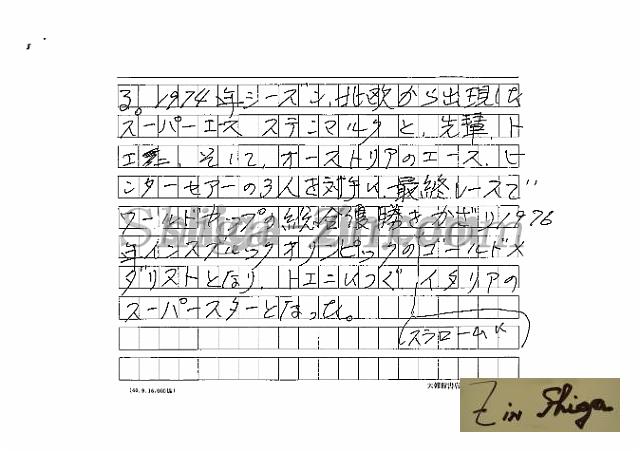 る。1974年シーズン、北欧から出現した
スーパーエース ステンマルクと、先輩、ト
エニ、そして、オーストリアのエース、ヒ
ンターセアーの3人を対手に、最終レースで
ワールドカップの総合優勝をかざり1976
年インスブルックオリンピックのゴールドメ
ダリストとなり、トエニにつぐ イタリアの
スーパースターとなった。
スラロームで
Shiga Zin.com
Z in Shiga